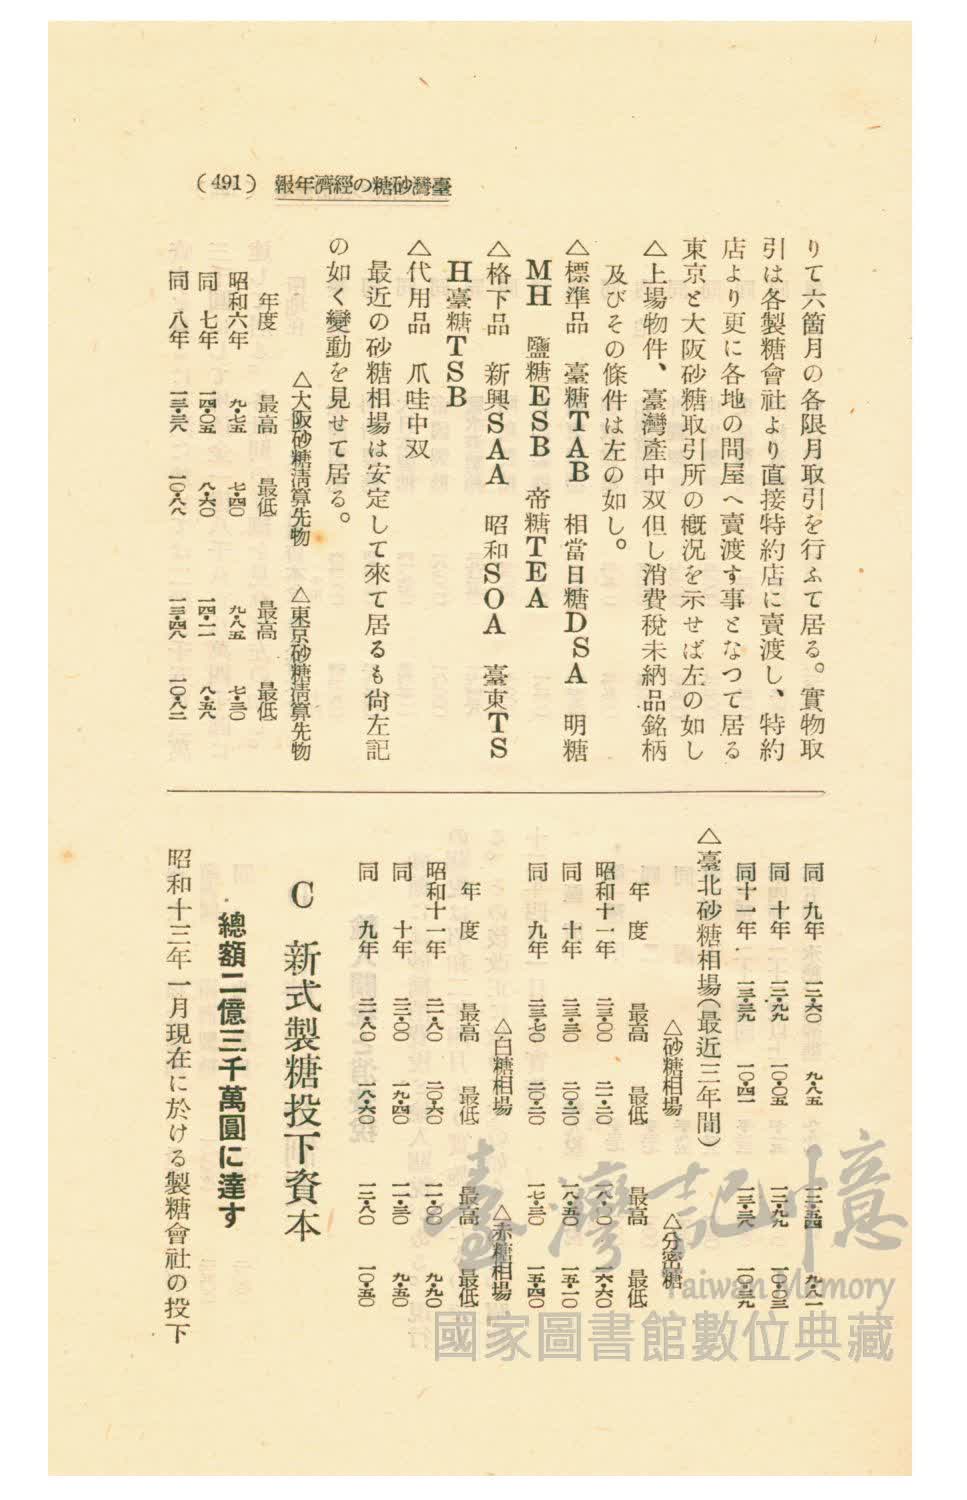 (491) 報年濟經の糖砂灣臺
りて六箇月の各限月取引を行ふて居る。實物取
引は各製糖會社より直接特約店に賣渡し、特約
店より更に各地の問屋へ賣渡す事となつて居る
東京と大阪砂糖取引所の概況を示せば左の如し
△上場物件、臺灣產中双但し消費稅未納品銘柄
及びその條件は左の如し。
△標準品 臺糖TAB 相當日糖DSA 明糖
MH 鹽糖ESB 帝糖TEA
△格下品 新興SAA 昭和SOA 臺東TS
H臺糖TSB
△代用品 爪哇中双
最近の砂糖相場は安定して來て居るも尙左記
の如く變動を見せて居る。
△大阪砂糖淸算先物 △東京砂糖淸算先物
年度 最高 最低 最高 最低
昭和六年 九・七五 七・四〇 九・八五 七・三〇
同 七年 一四・〇五 八・六〇 一四・一一 八・五八
同 八年 一三・三六 一〇・八八 一三・四八 一〇・八二
同 九年 一三・六〇 九・八五 一三・五四 九・八一
同 十年 一三・九九 一〇・〇五 一三・九九 一〇・〇三
同十一年 一三・三九 一〇・四一 一三・三六 一〇・三九
△臺北砂糖相場(最近三年間)
△砂糖相場 △分密糖
年度 最高 最低 最高 最低
昭和十一年 二三・〇〇 二一・二〇 一八・〇〇 一六・六〇
同 十年 二三・三〇 二〇・二〇 一八・五〇 一五・一〇
同 九年 二三・七〇 二〇・二〇 一七・三〇 一五・四〇
△白糖相場 △赤糖相場
年度 最高 最低 最高 最低
昭和十一年 二一・八〇 二〇・六〇 一一・〇〇 九・九〇
同 十年 二三・〇〇 一九・四〇 一一・三〇 九・五〇
同 九年 二一・八〇 一八・六〇 一二・八〇 一〇・五〇
C 新式製糖投下資本
總額二億三千萬圓に達す
昭和十三年一月現在に於ける製糖會社の投下
臺灣記憶
Taiwan Memory
國家圖書館數位典藏